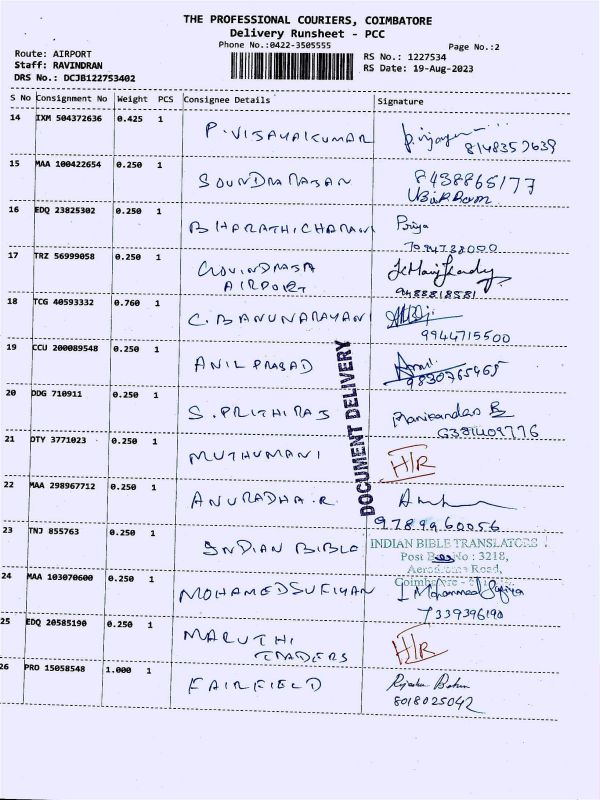 THE PROFESSIONAL COURIERS, COIMBATORE
Delivery Runsheet - PCC
Phone No.:0422-3505555
Page No.:2
Route: AIRPORT
Staff: RAVINDRAN
DRS No.: DCJB122753402
RS No.: 1227534
RS Date: 19-Aug-2023
S No Consignment No Weight PCS Consignee Details Signature
14 IXM 504372636 0.425 1 P. VIJAYAKUMAR
8148352639
15 MAA 100422654 0.250 1 SOUNDRARAJAN 8438865177
16 EDQ 23825302 0.250 1 BHARATHI CHARANI Priya
17 TRZ 56999058 0.250 1 GOVINDRAJA
AIRPORT
9488818581
18 TCG 40593332 0.760 1 C. BANUNARAYANI
9944715500
19 CCU 200089548 0.250 1 ANIL PRASAD
9830765465
20 DDG 710911 0.250 1 S. PRITHIRAJ Manikandan
21 OTY 3771023 0.250 1 MUTHUMANI H/R
22 MAA 298967712 0.250 1 ANURADHA.R
9789960056
23 TNJ 855763 0.250 1 INDIAN BIBLE INDIAN BIBLE TRANSLATORS
Post No : 3218,
Aerodrome Road,
Coimbatore -
24 MAA 103070600 0.250 1 MOHAMEDSUFIYAN I Mohammed Sufiya
7339396190
25 EDQ 20585190 0.250 1 MARUTHI
TRADERS
H/R
26 PRO 15058548 1.000 1 FAIRFIELD
8018025042
DOCUMENT DELIVERY